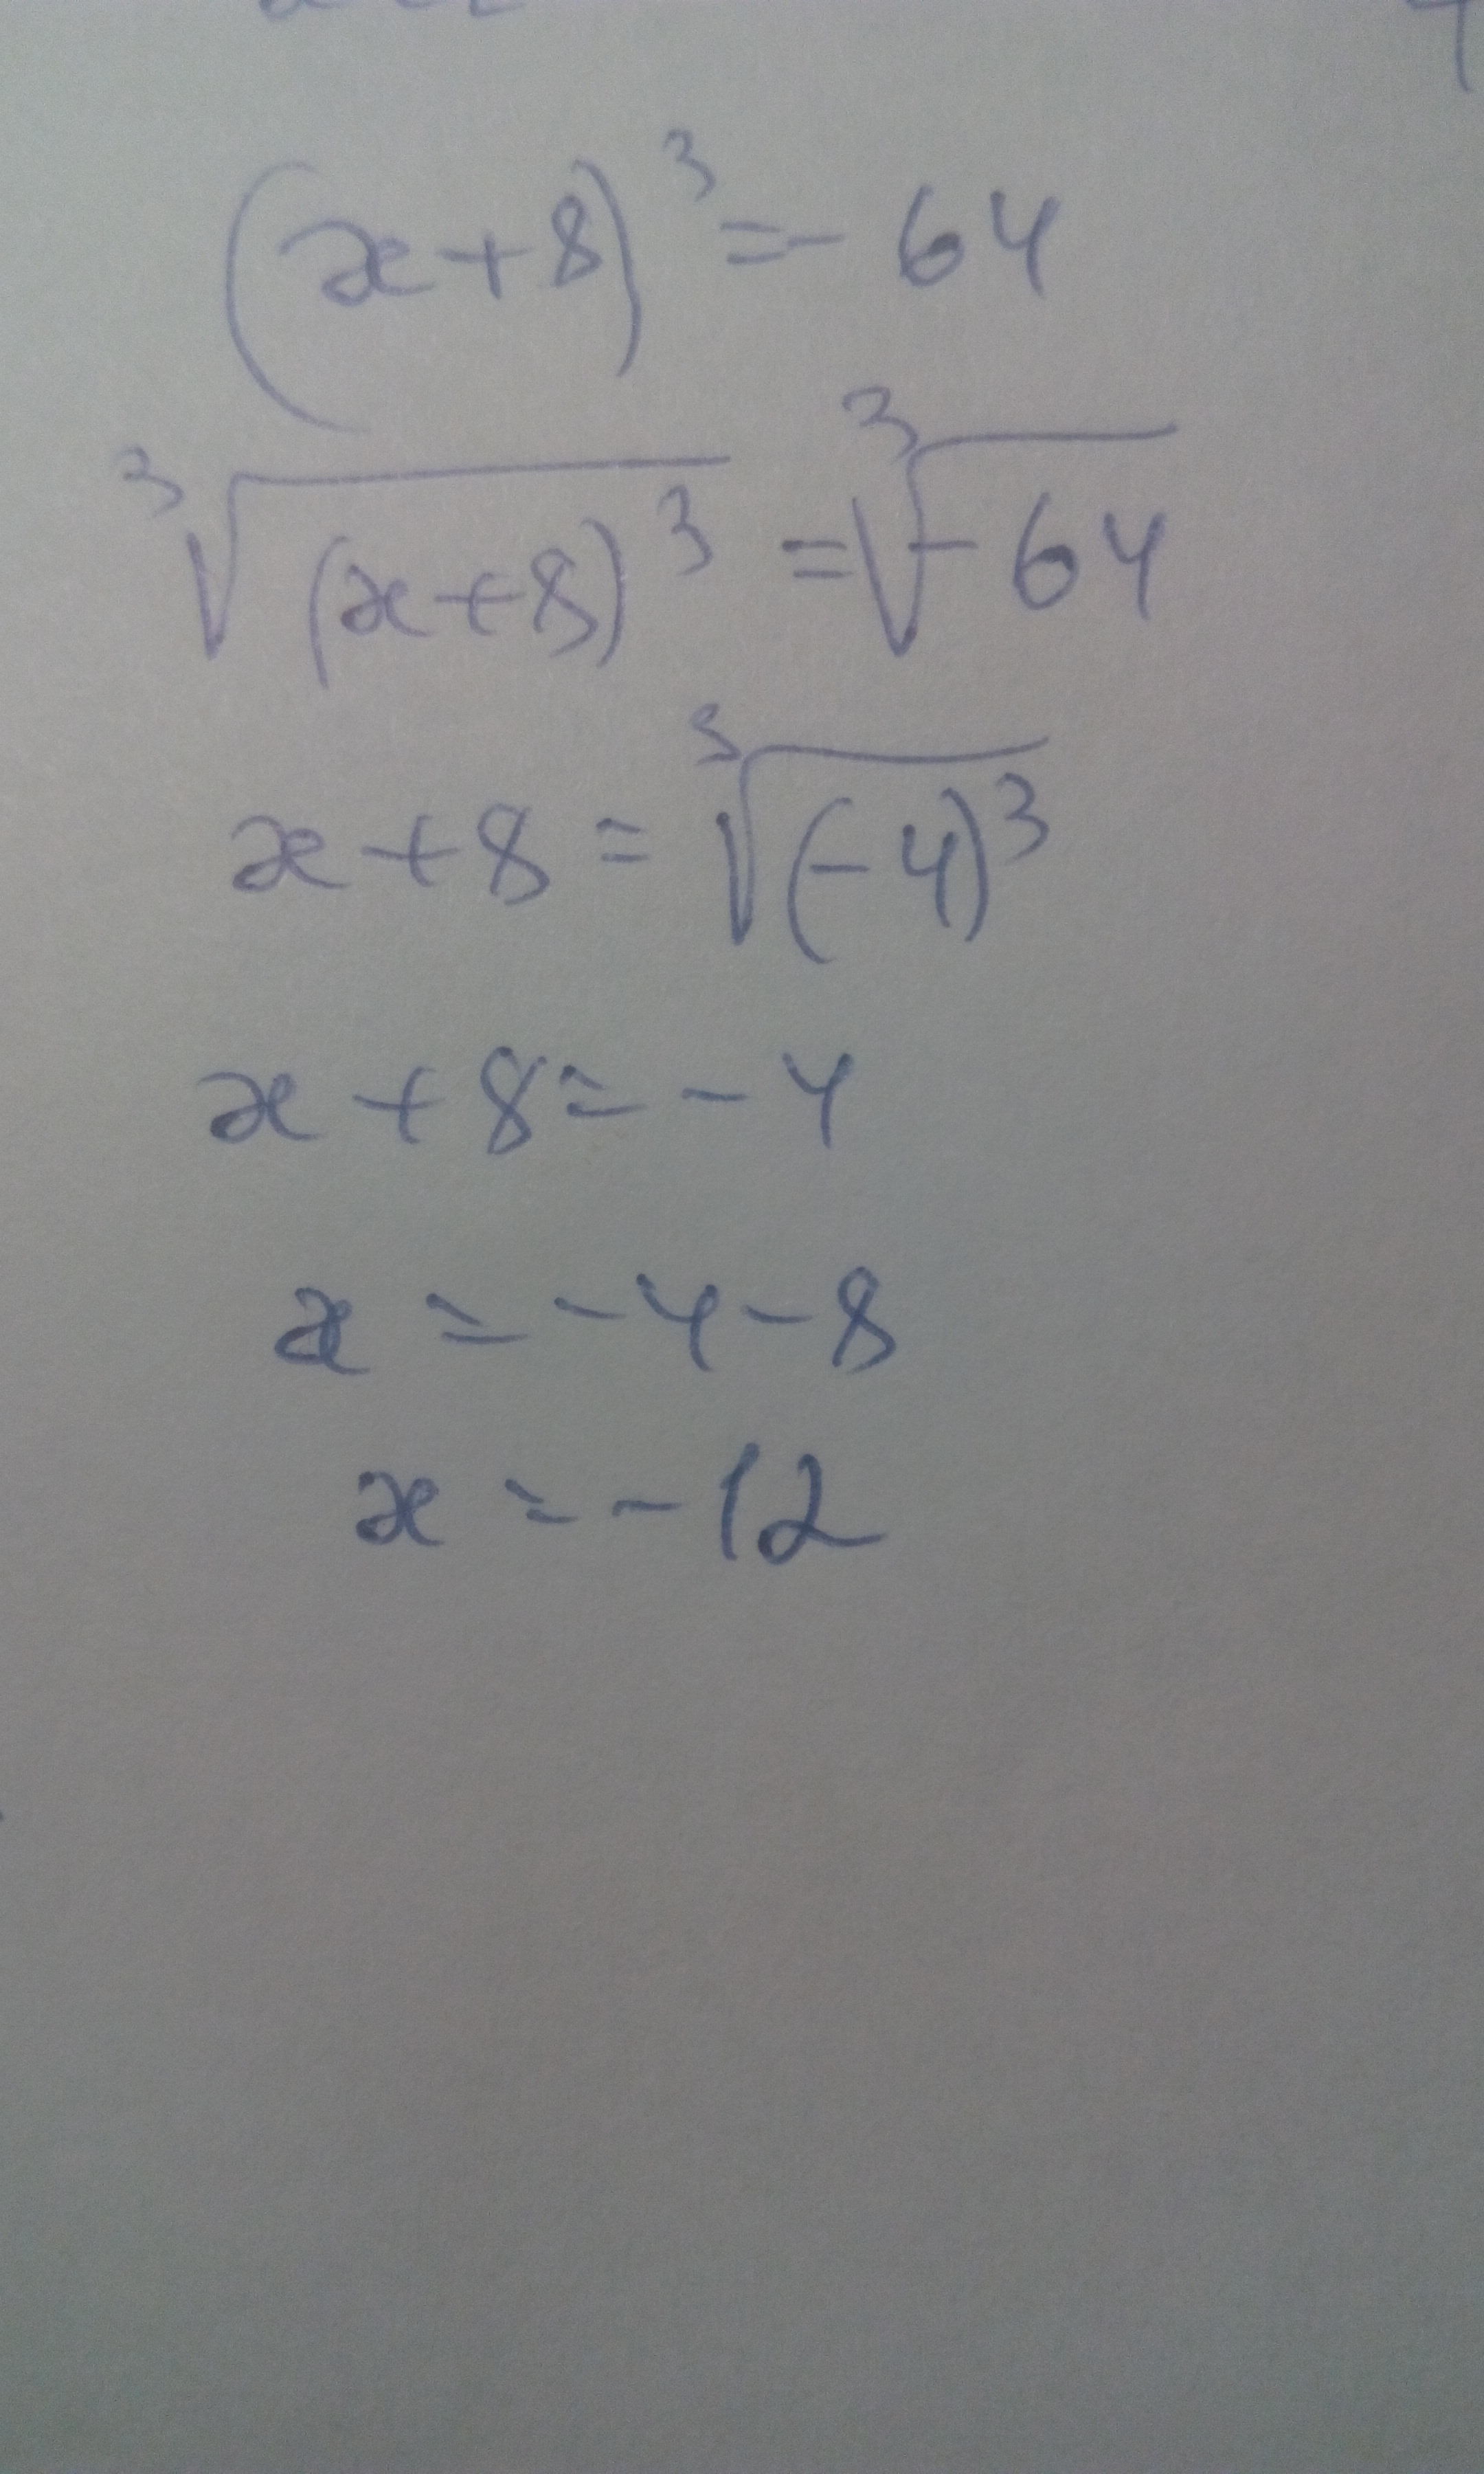 (x+8)³=-64
∛(x+8)³ = ∛-64
x+8 = ∛(-4)³
x+8=-4
x=-4-8
x=-12